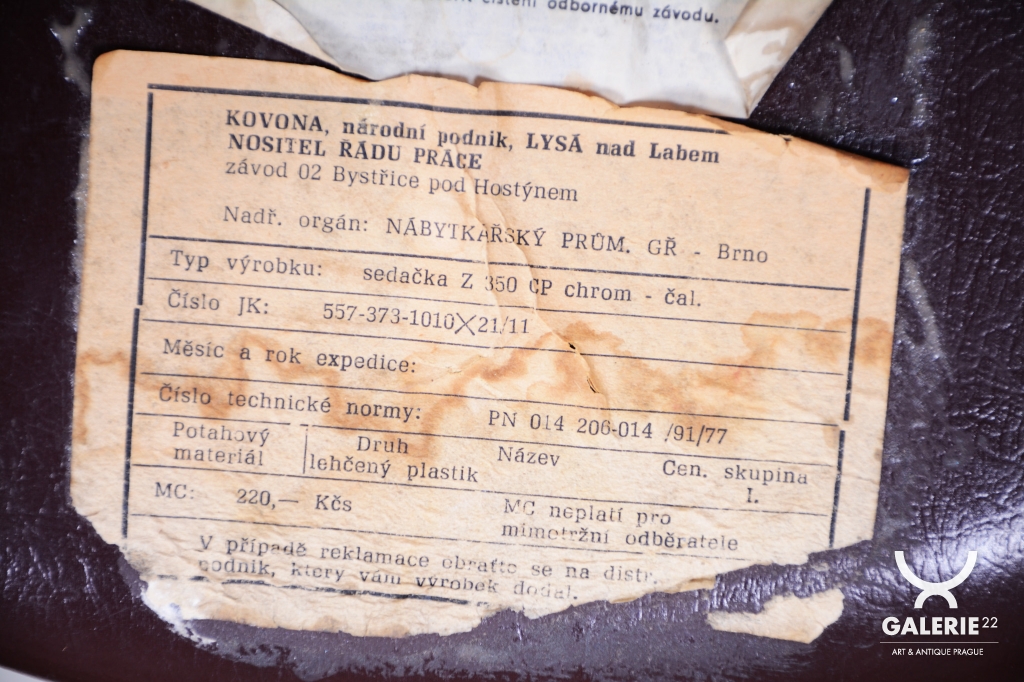 čištění odbornému závodu.
KOVONA, národní podnik, LYSÁ nad Labem
NOSITEL ŘÁDU PRÁCE
závod 02 Bystřice pod Hostýnem
Nadř. orgán: NÁBYTKÁŘSKÝ PRŮM. GŘ - Brno
Typ výrobku: sedačka Z 350 CP chrom - čal.
Číslo JK: 557-373-1010X21/11
Měsíc a rok expedice:
Číslo technické normy: PN 014 206-014 /91/77
Potahový materiál
Druh lehčený plastik
Název
Cen. skupina I.
MC: 220,— Kčs
MC neplatí pro
mimotržní odběratele
V případě reklamace obraťte se na distr.
podnik, který vám výrobek dodal.
GALERIE 22
ART & ANTIQUE PRAGUE